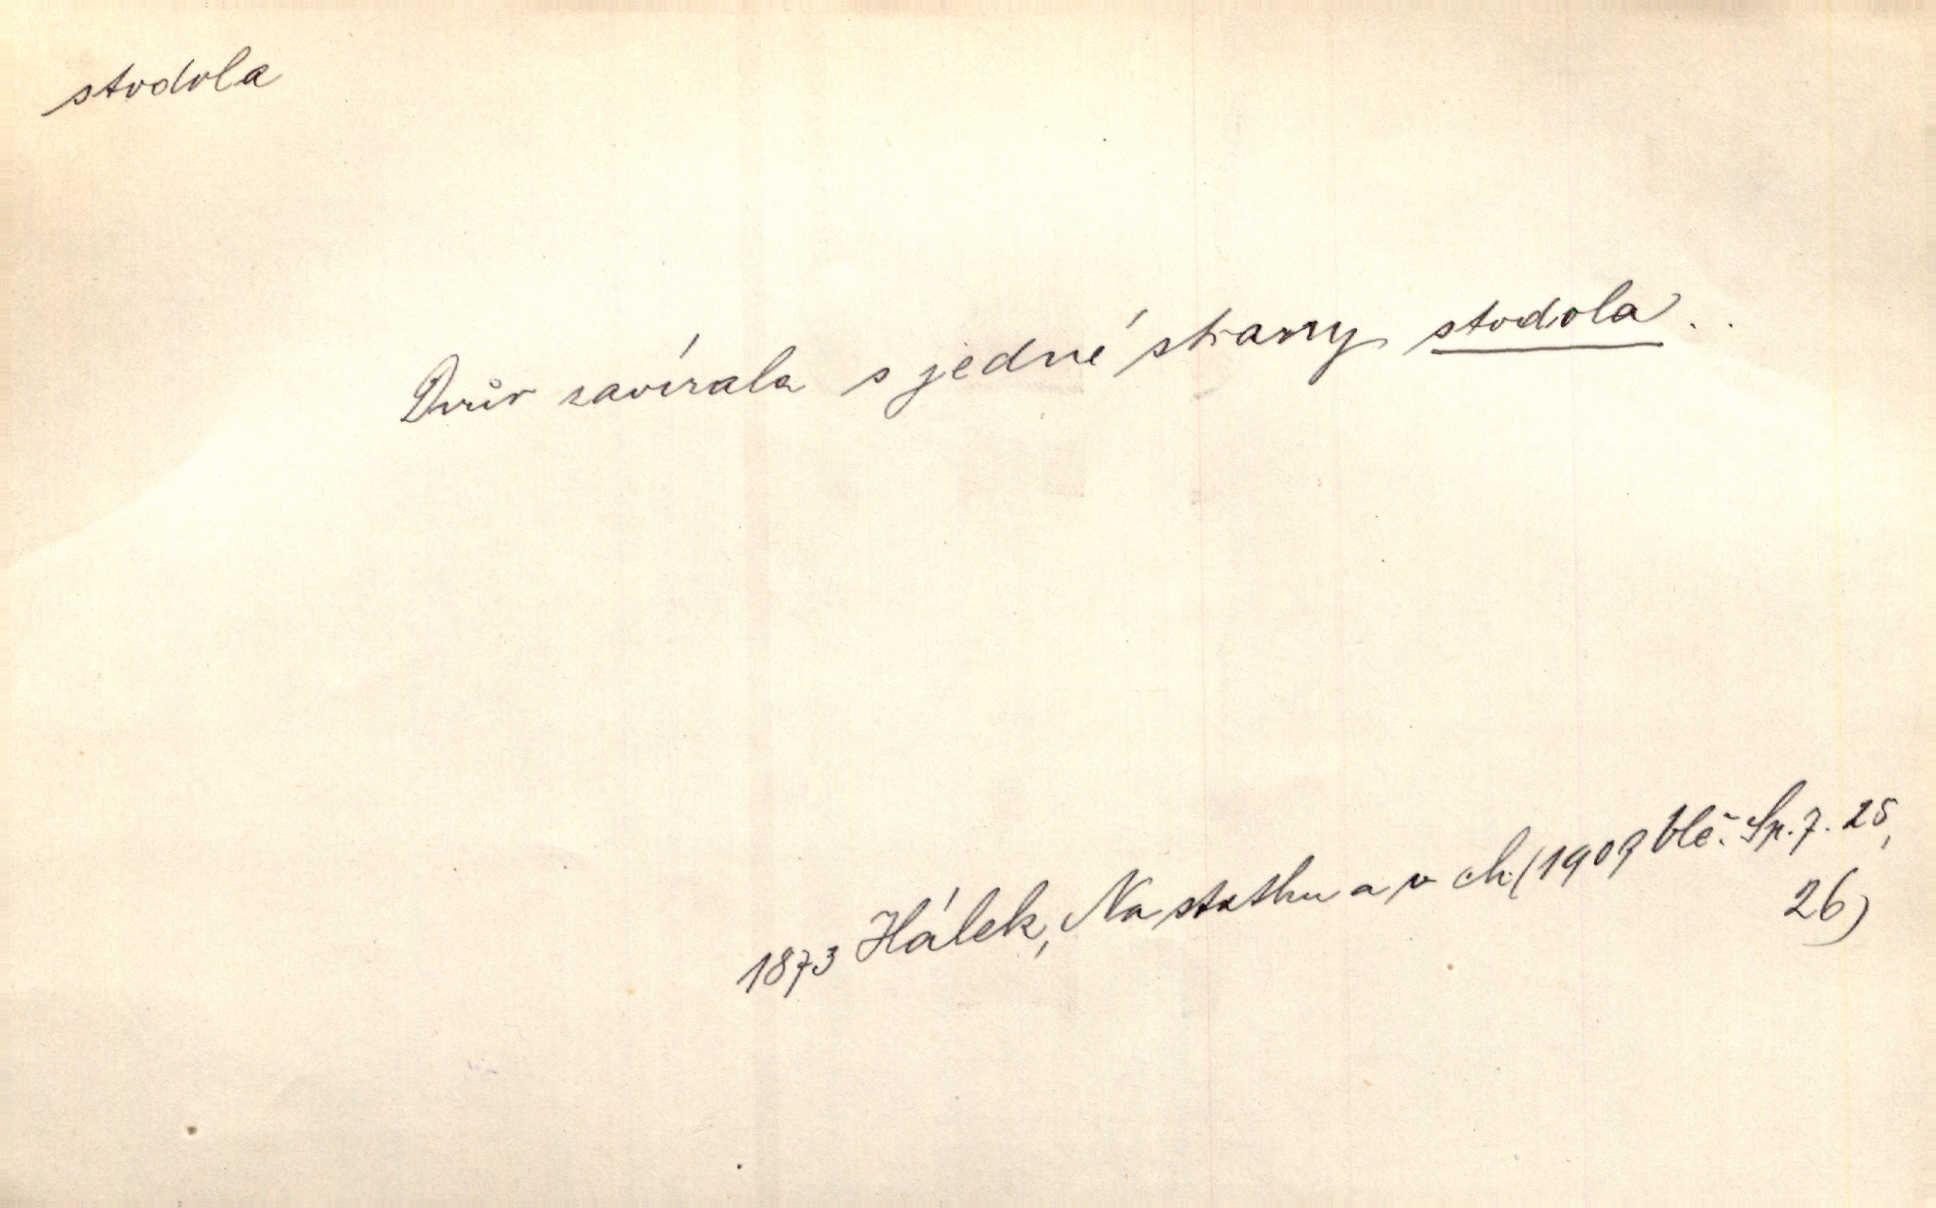 stodola
Dvůr zavírala s jedné strany stodola..
1873 Hálek, Na statku a v ch. (1909 Vlč. Sp. 7. 25,
26)